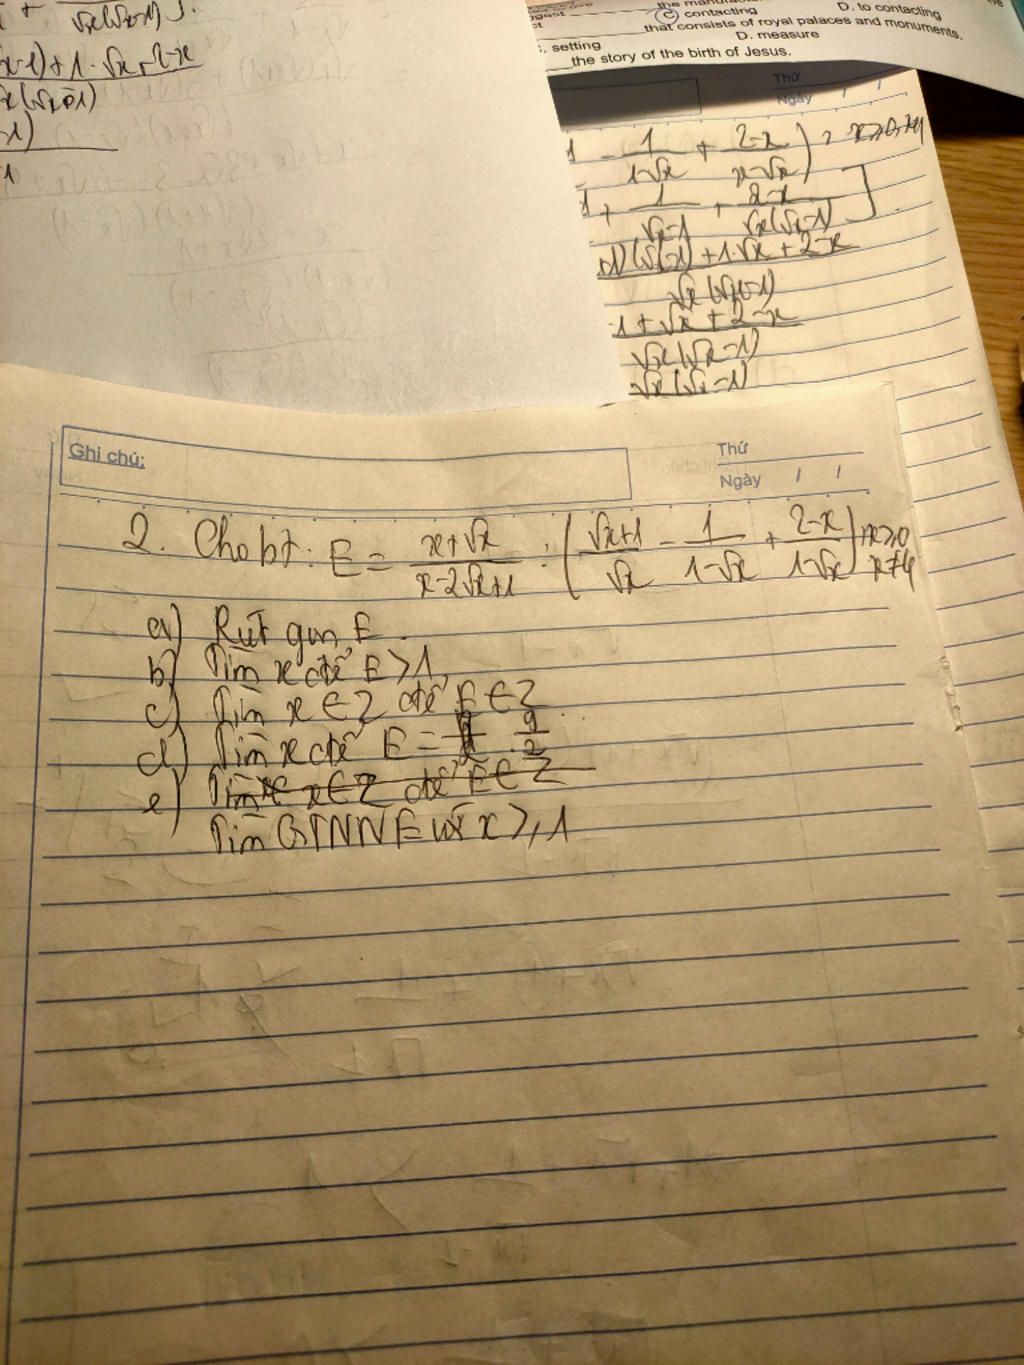 √x(√x-1)
x-1)+1·√x+2-x
√x(√x-1)
-1)
1
the manufactu
D. to contacting
C contacting
that consists of royal palaces and monuments.
setting
D. measure
the story of the birth of Jesus.
Thứ
Ngày / /
1 - 1/(1-√x) + (2-x)/(x-√x))
1 + 1/(√x-1) + (2-x)/(√x(√x-1))].
+1)(√x-1)+1·√x+2-x
√x(√x-1)
-1+√x+2-x
√x(√x-1)
√x(√x-1)
Ghi chú:
Thứ
Ngày / /
2. Cho bt: E = (x+√x)/(x-2√x+1) : ((√x+1)/√x - 1/(1-√x) + (2-x)/(1-√x))
a) Rút gọn E.
b) Tìm x để E>1
c) Tìm x∈Z để E∈Z
d) Tìm x để E = 9/2
e) Tìm x∈Z để E∈Z
Tìm GTNN E với x>,1